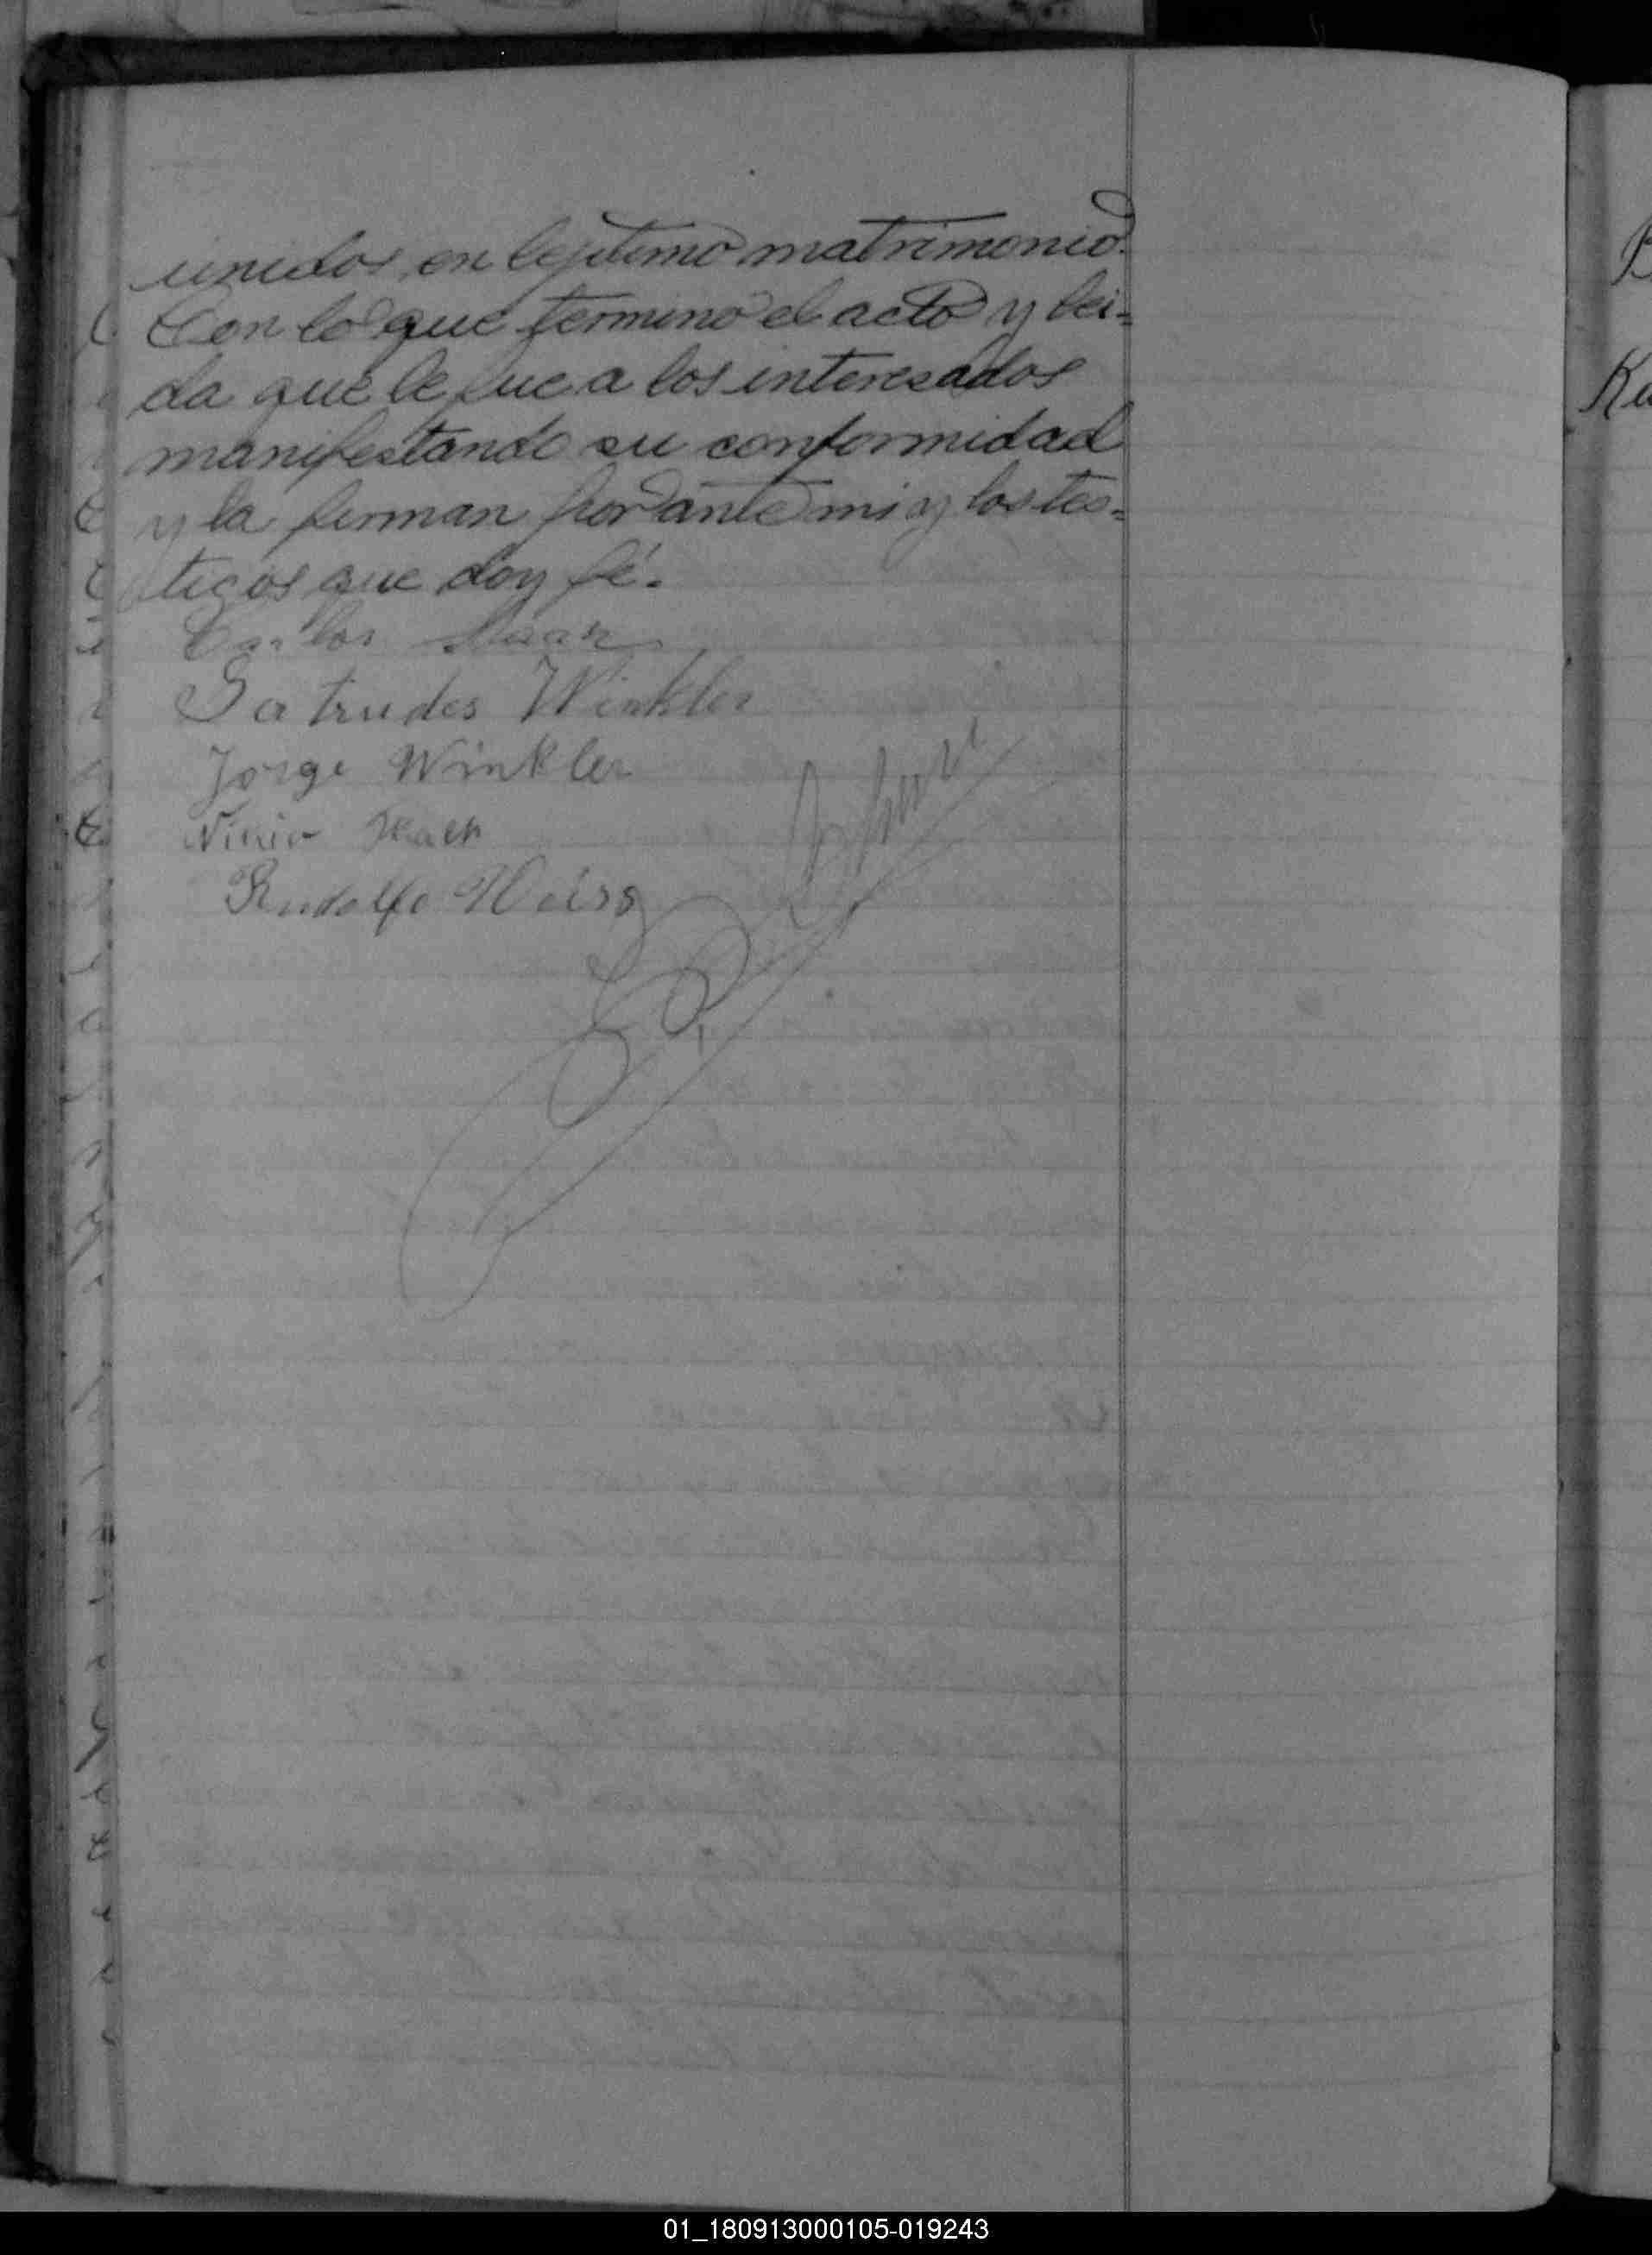 unidos en lejitimo matrimonio.
Con lo que termino el acto y lei=
da que le fue a los interesados
manifestando su conformidad
y la firman por ante mi y los tes=
tigos que doy fé.
Carlos
Gatrudes Winkler
Jorge Winkler
Rudolfo Weiss
01_180913000105-019243